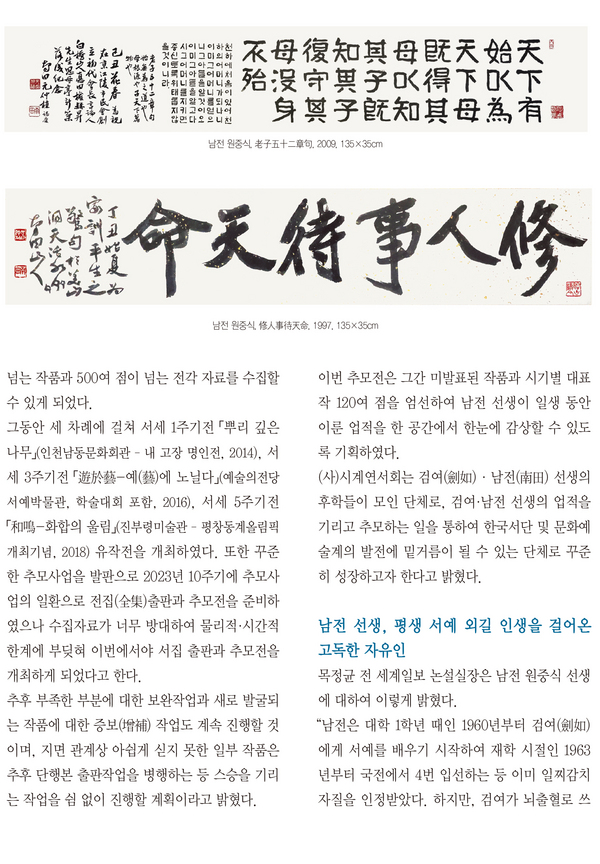 天下有
始以為
天下母
既得其
母以知
其子既
知其子
復守其
母沒身
不殆
천하에처음이있어천
하의어머니가되니
이미그어머니를얻으
니그아들을알것이요
이미그아들을알고다
시그어머니를지키면
종신토록위태롭지않
을것이니라
남전 원중식, 老子五十二章句, 2009, 135×35cm
修人事待天命
丁丑始夏為
家訓平生之
남전 원중식, 修人事待天命, 1997, 135×35cm
넘는 작품과 500여 점이 넘는 전각 자료를 수집할
수 있게 되었다.
그동안 세 차례에 걸쳐 서세 1주기전 「뿌리 깊은
나무」(인천남동문화회관 - 내 고장 명인전, 2014), 서
세 3주기전 「遊於藝-예(藝)에 노닐다」(예술의전당
서예박물관, 학술대회 포함, 2016), 서세 5주기전
「和鳴-화합의 울림」(진부령미술관 - 평창동계올림픽
개최기념, 2018) 유작전을 개최하였다. 또한 꾸준
한 추모사업을 발판으로 2023년 10주기에 추모사
업의 일환으로 전집(全集)출판과 추모전을 준비하
였으나 수집자료가 너무 방대하여 물리적·시간적
한계에 부딪혀 이번에서야 서집 출판과 추모전을
개최하게 되었다고 한다.
추후 부족한 부분에 대한 보완작업과 새로 발굴되
는 작품에 대한 증보(增補) 작업도 계속 진행할 것
이며, 지면 관계상 아쉽게 싣지 못한 일부 작품은
추후 단행본 출판작업을 병행하는 등 스승을 기리
는 작업을 쉼 없이 진행할 계획이라고 밝혔다.
이번 추모전은 그간 미발표된 작품과 시기별 대표
작 120여 점을 엄선하여 남전 선생이 일생 동안
이룬 업적을 한 공간에서 한눈에 감상할 수 있도
록 기획하였다.
(사)시계연서회는 검여(劍如)·남전(南田) 선생의
후학들이 모인 단체로, 검여·남전 선생의 업적을
기리고 추모하는 일을 통하여 한국서단 및 문화예
술계의 발전에 밑거름이 될 수 있는 단체로 꾸준
히 성장하고자 한다고 밝혔다.
남전 선생, 평생 서예 외길 인생을 걸어온
고독한 자유인
목정균 전 세계일보 논설실장은 남전 원중식 선생
에 대하여 이렇게 밝혔다.
“남전은 대학 1학년 때인 1960년부터 검여(劍如)
에게 서예를 배우기 시작하여 재학 시절인 1963
년부터 국전에서 4번 입선하는 등 이미 일찌감치
자질을 인정받았다. 하지만, 검여가 뇌출혈로 쓰